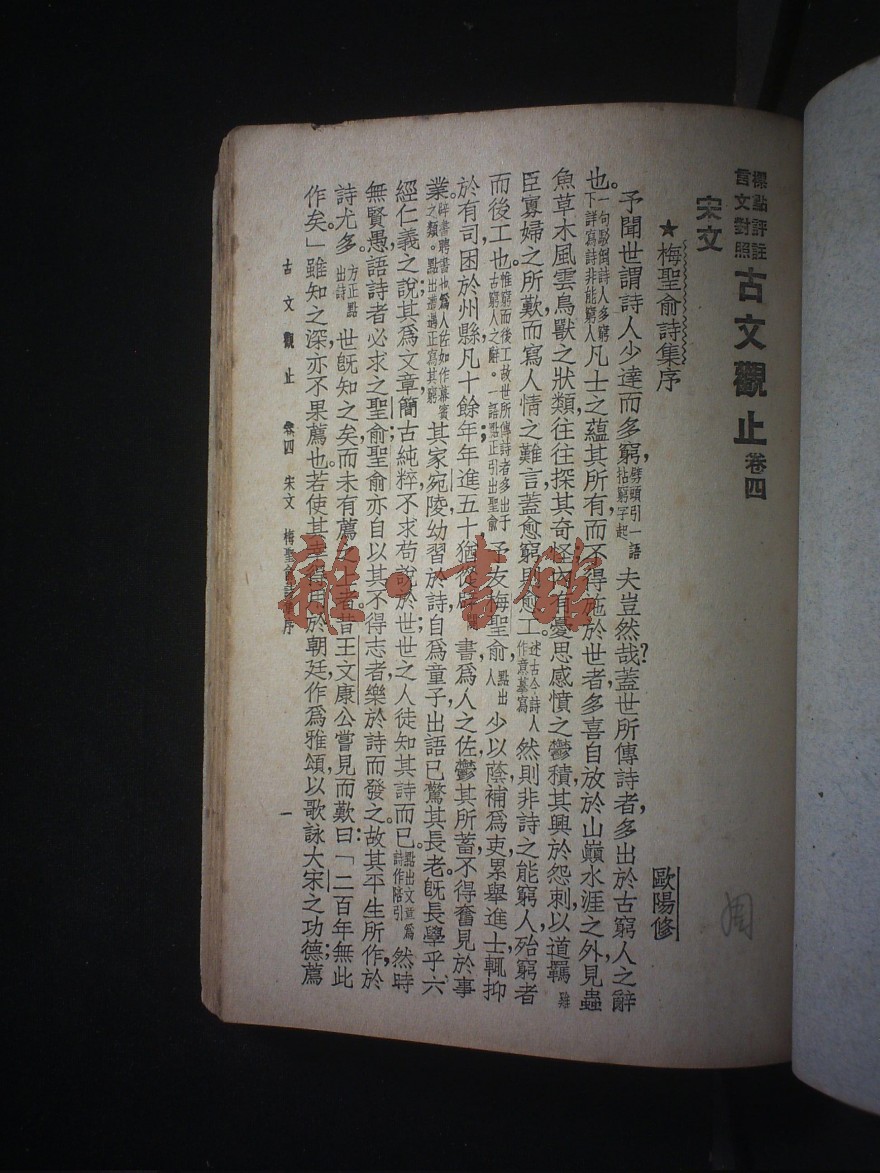 標點評註
言文對照
古文觀止 卷四
宋文
★梅聖俞詩集序
歐陽修
予聞世謂詩人少達而多窮,劈頭引一語拈窮字起夫豈然哉?蓋世所傳詩者,多出於古窮人之辭
也。一句駁倒詩人多窮下詳寫詩非能窮人凡士之蘊其所有而不得施於世者,多喜自放於山巔水涯之外,見蟲
魚草木風雲鳥獸之狀類,往往探其奇怪,內有憂思感憤之鬱積,其興於怨刺,以道羈雖
臣寡婦之所歎,而寫人情之難言;蓋愈窮則愈工。述古今詩人作意摹寫然則非詩之能窮人,殆窮者
而後工也。惟窮而後工故世所傳詩者多出于古窮人之辭。一語點正引出聖俞予友梅聖俞,點出人少以蔭補爲吏,累舉進士,輒抑
於有司,困於州縣,凡十餘年;年進五十,猶從辟書,爲人之佐,鬱其所蓄,不得奮見於事
業。辟書聘書也爲人佐如作幕賓之類。點出遭遇正寫其窮其家宛陵,幼習於詩,自爲童子,出語已驚其長老。旣長,學乎六
經仁義之說;其爲文章,簡古純粹,不求苟說於世;世之人徒知其詩而已。點出文章爲詩作陪引然時
無賢愚,語詩者必求之聖俞;聖俞亦自以其不得志者,樂於詩而發之。故其平生所作,於
詩尤多。方正點出詩世旣知之矣,而未有薦於上者。昔王文康公嘗見而歎曰:「二百年無此
作矣」雖知之深,亦不果薦也。若使其幸得用於朝廷,作爲雅頌,以歌詠大宋之功德;薦
古文觀止 卷四 宋文 梅聖俞詩集序 一
雜·書館
周